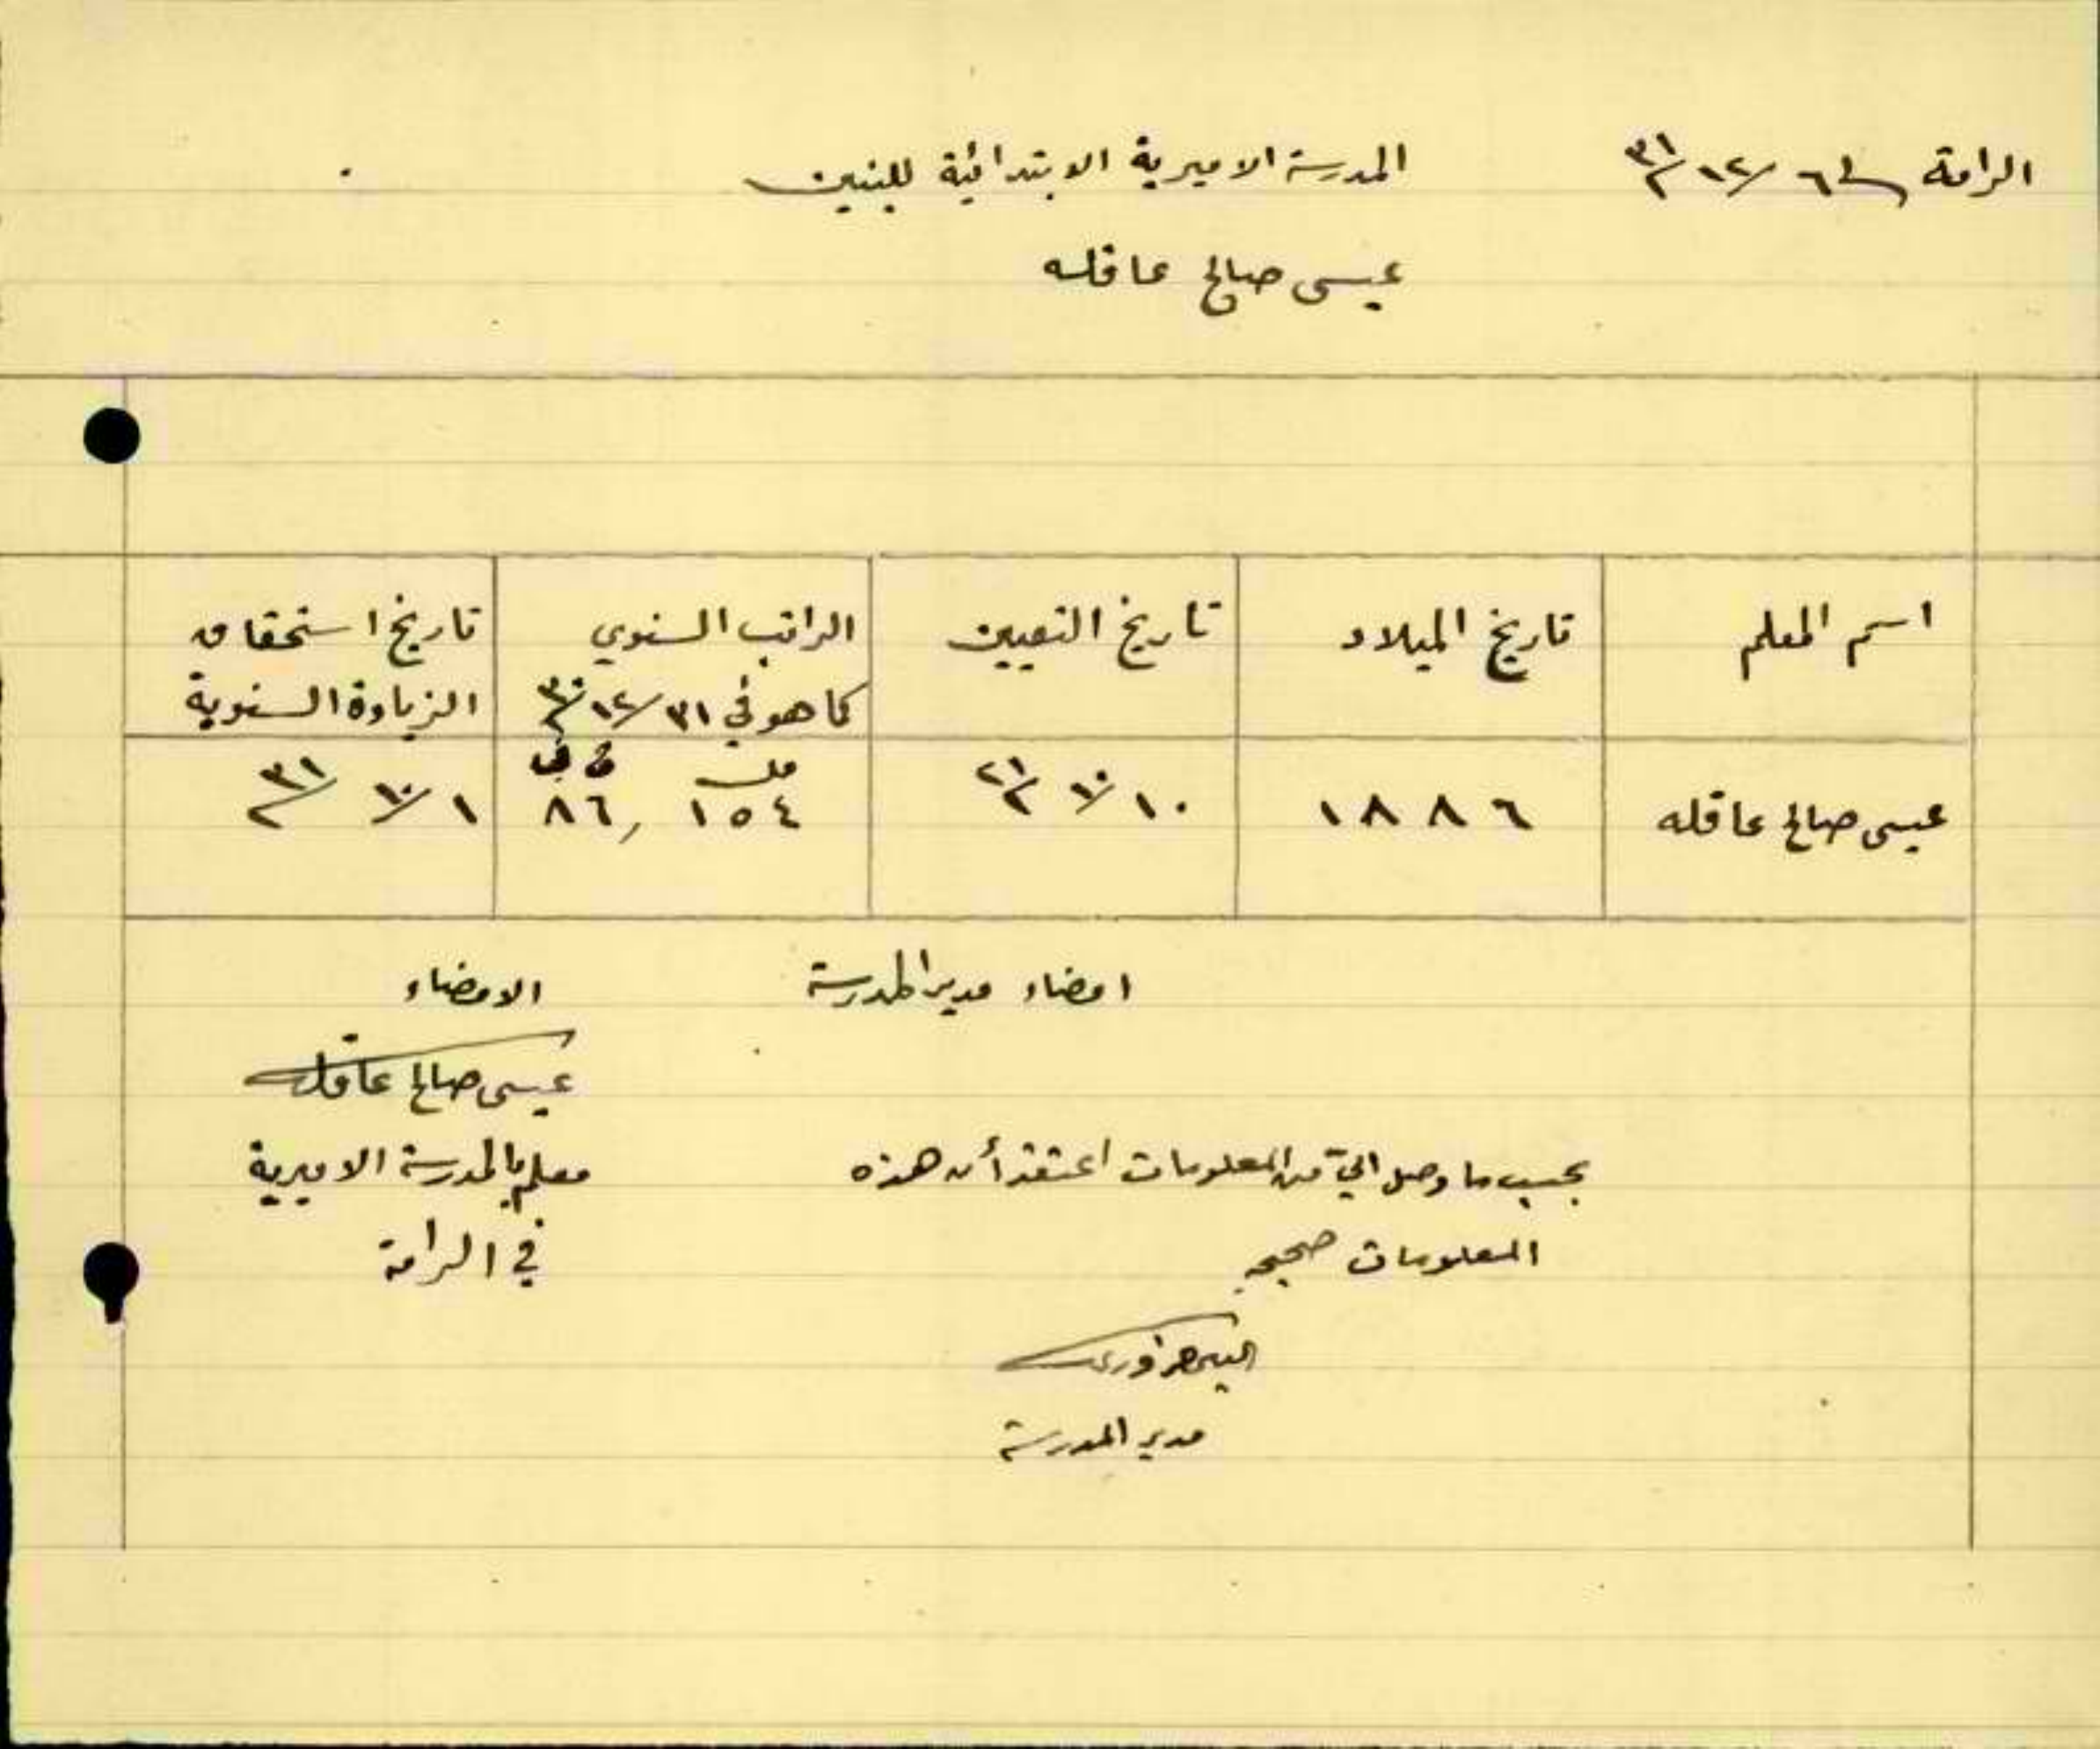 الرامة في ٦/١٢/٣١
المدرسة الاميرية الابتدائية للبنين
عيسى صالح عاقله
اسم المعلم
تاريخ الميلاد
تاريخ التعيين
الراتب السنوي
كما هو في ٣١/١٢/٣٠
تاريخ استحقاق
الزيادة السنوية
عيسى صالح عاقله
١٨٨٦
١٠/١٠/٢١
مل
١٥٤ ,٨٦
١/١٠/٣١
امضاء مدير المدرسة
الامضاء
عيسى صالح عاقله
معلم بالمدرسة الاميرية
في الرامة
بحسب ما وصل اليّ من المعلومات اعتقد أن هذه
المعلومات صحيحه
مدير المدرسة